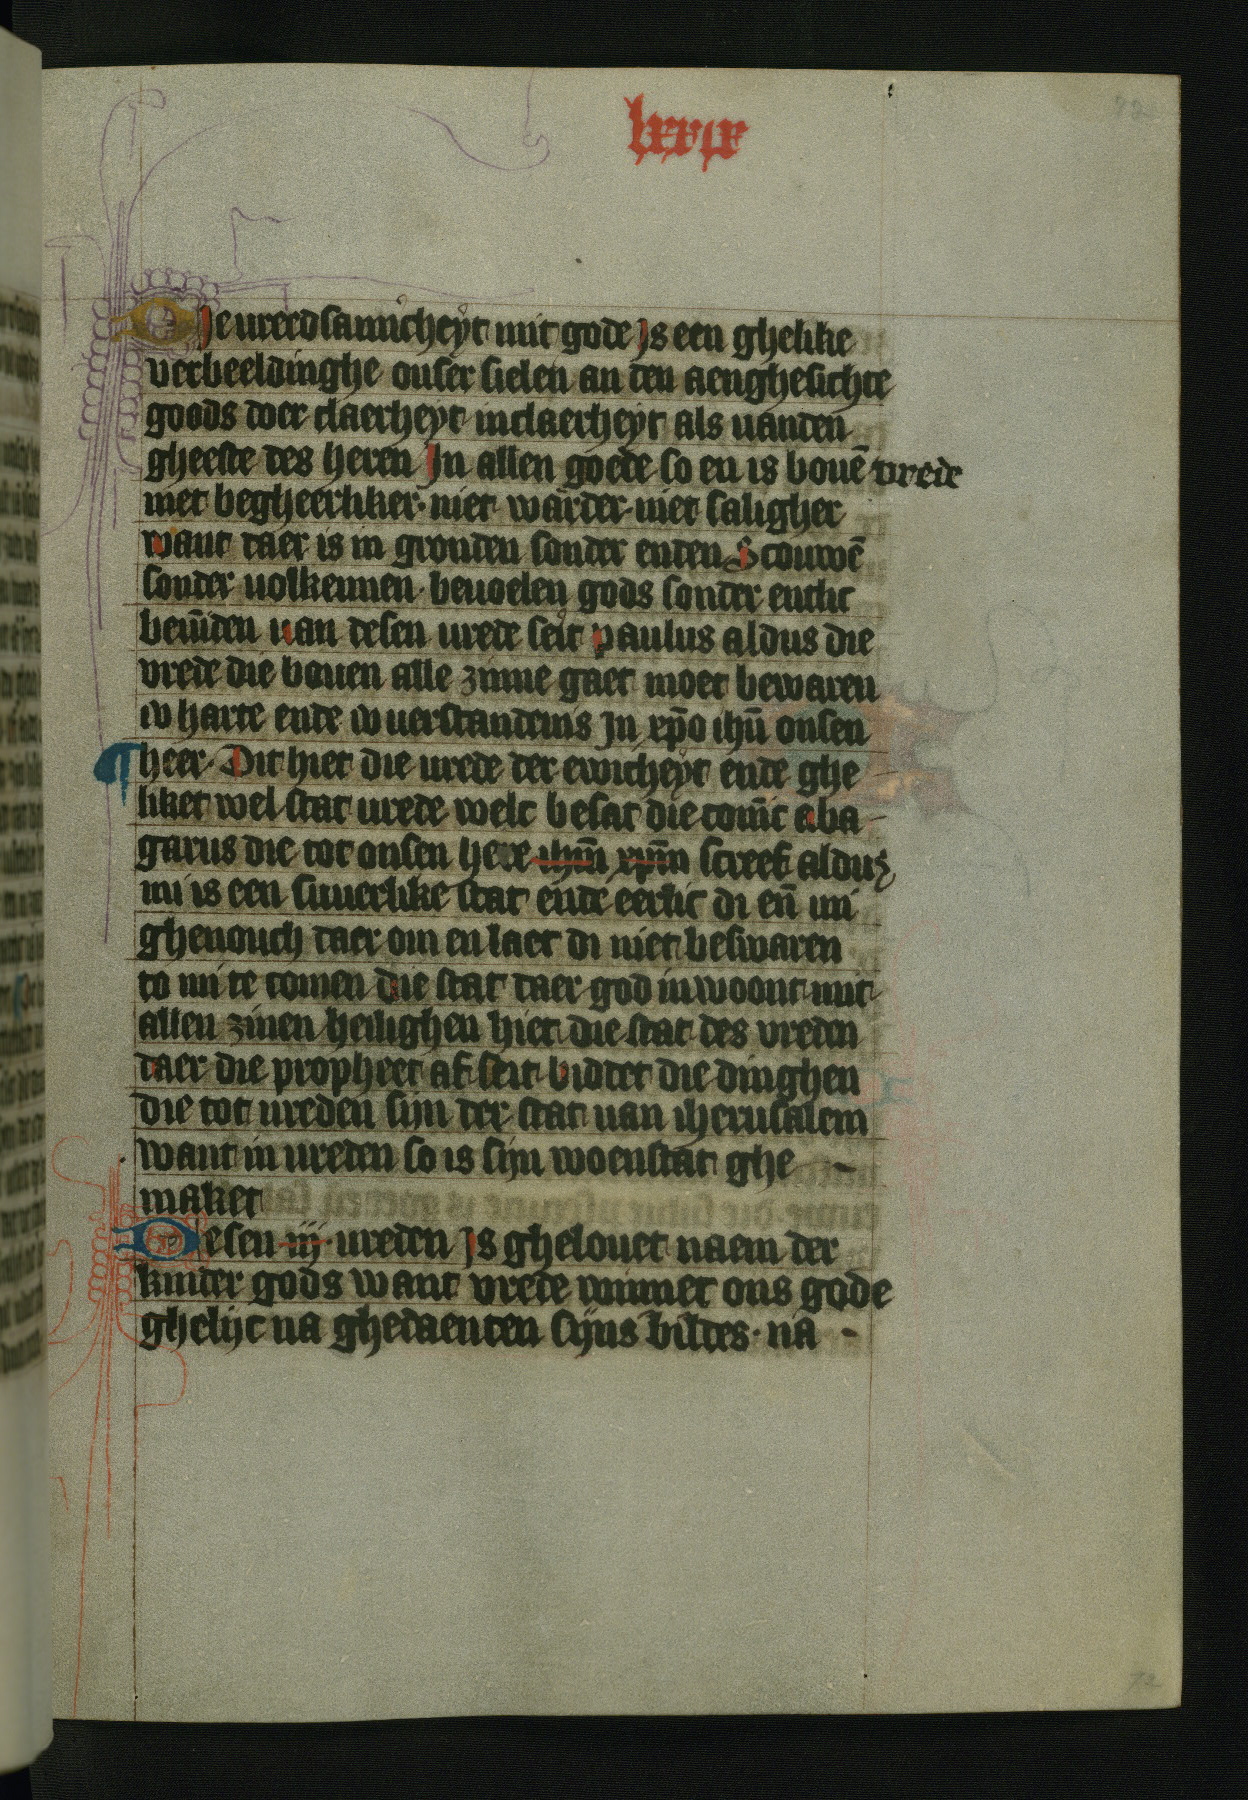 lxxix
Die vreedsamicheyt mit gode Js een ghelike
verbeeldinghe onser sielen an den aenghesichte
goods doer claerheyt in claerheyt als vanden
gheeste des heren Jn allen goede so en is bouē vrede
niet begheerliker· niet waerder· niet saligher
want daer is in gronden sonder enden Scouwē
sonder volkennen· bevoelen gods sonder entlic
bemīden van desen vrede seit paulus aldus die
vrede die bouen alle zinne gaet moet bewaren
iv harte ende iv verstandenis Jn xp̄o ihū onsen
heer· Dit hiet die vrede der ewicheyt ende ghe
liket wel stat vrede welc besat die conīc aba
garus die tot onsen here ihm̄ xpm̄ screef aldus
mi is een suuerlike stat ende eerlic di en̄ mi
ghenouch daer om en laet di niet beswaren
to mi te comen die stat daer god in woont mit
allen zinen heilighen hiet die stat des vreden
daer die propheet af seit biddet die dinghen
die tot vreden sijn der stat van iherusalem
want in vreden so is sijn woenstat ghe
maket
Desen iij vreden Js ghelouet naem der
kinder gods want vrede vormet ons gode
ghelijc na ghedaenten sijns bildes· na
72